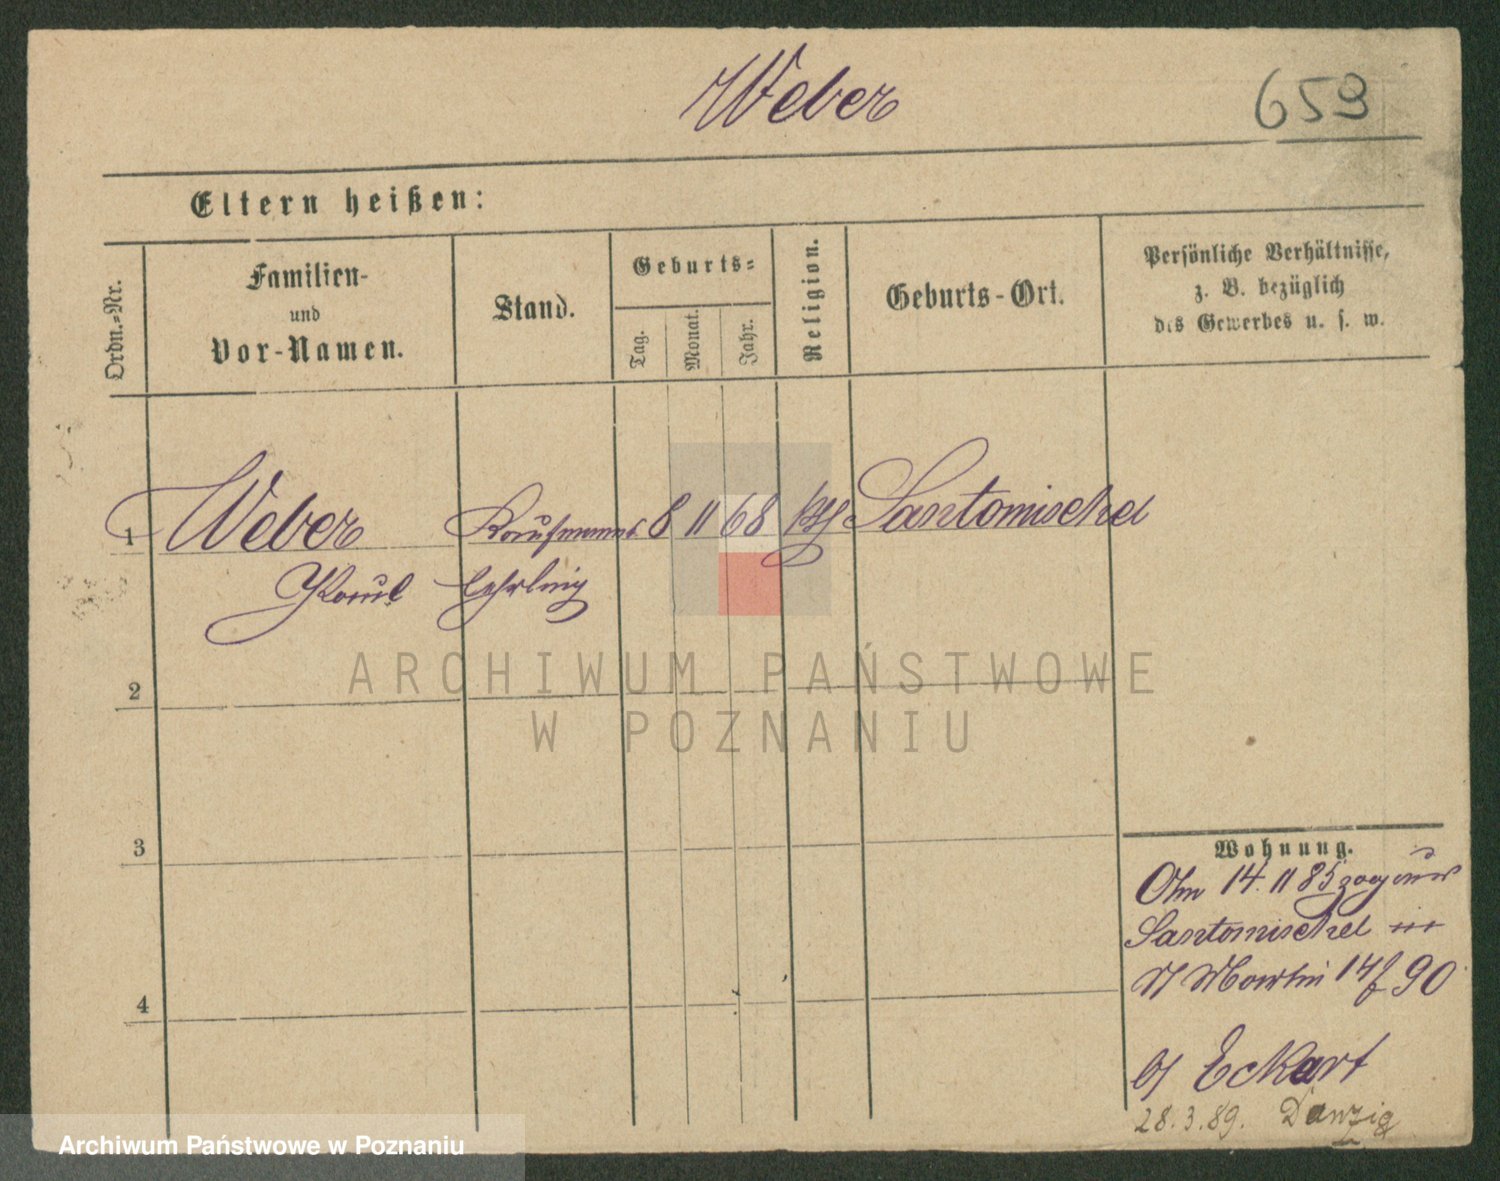 Weber
659
Eltern heißen:
Ordn.-Nr.
Familien-
und
Vor-Namen.
Stand.
Geburts-
Tag.
Monat.
Jahr.
Religion.
Geburts-Ort.
Persönliche Verhältnisse,
z. B. bezüglich
des Gewerbes u. s. w.
1
Weber
Kaufmanns
8
11
68
Santomischel
Paul
Lehrling
2
3
4
Wohnung.
14. 11 85 zog aus
Santomischel
St Martin 14/90
b/ Eckart
28.3.89. Danzig
ARCHIWUM PAŃSTWOWE
W POZNANIU
Archiwum Państwowe w Poznaniu